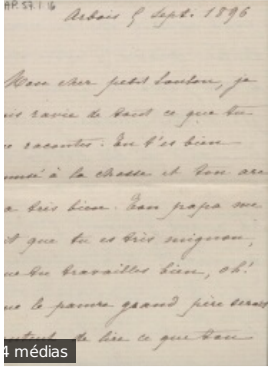 AP. 57.1.16
Arbois 5 Sept. 1896
Mon cher petit Loulou, je
is ravie de tout ce que tu
e racontes. Tu t'es bien
musé à la chasse et ton arc
a très bien. Ton papa me
it que tu es très mignon,
ue tu travailles bien, oh!
ue le pauvre grand père serait
ontent de lire ce que ton
4 médias